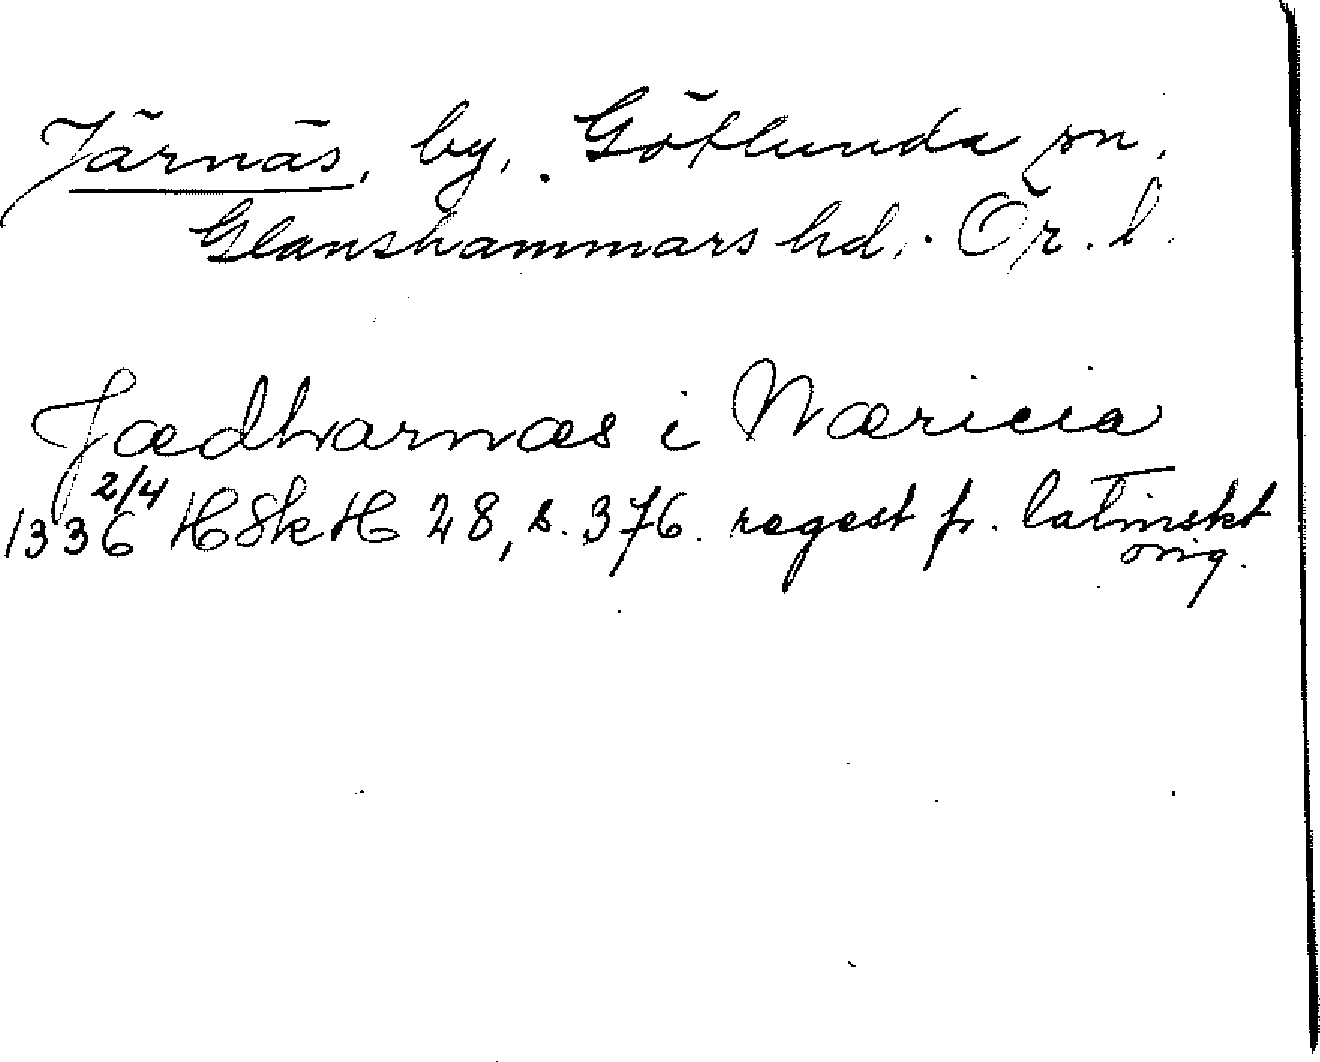 Järnäs, by, Götlunda sn,
Glanshammars hd, Ör. l.
Jædharnæs i Næricia
1336 2/4 HSkH 28, s. 376. regest fr. latinskt
orig.